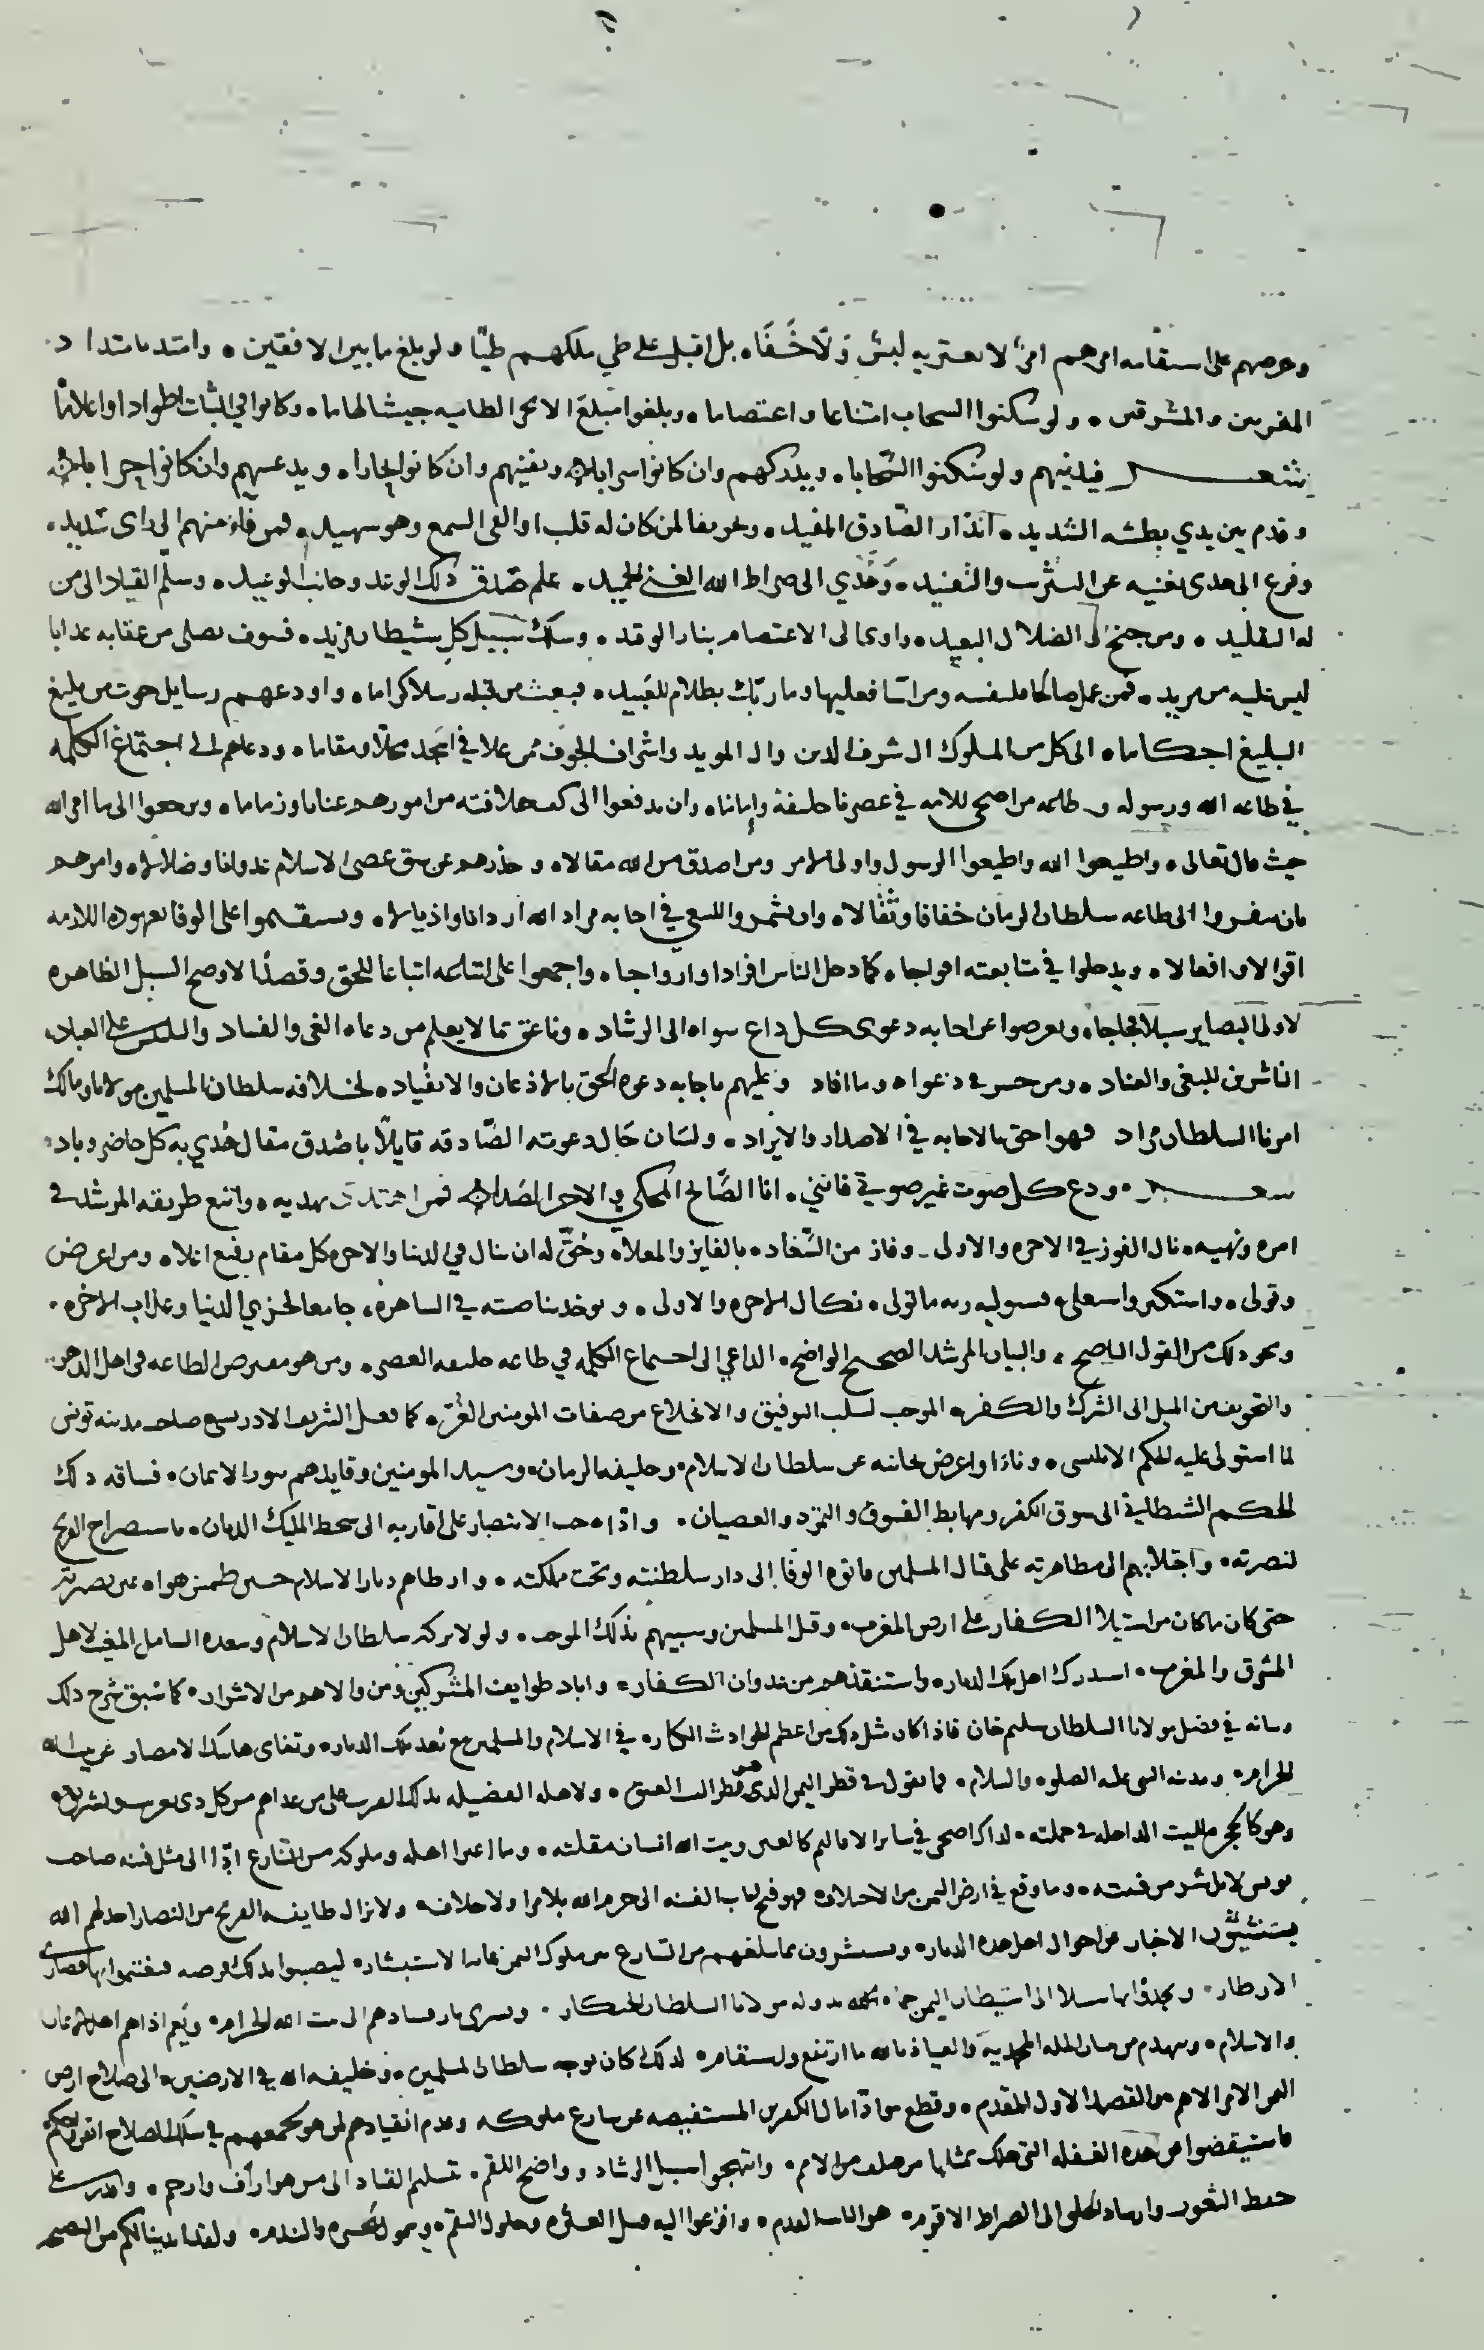 وحرصهم على استقامه امرهم امرٌ لا يعتريه لبسٌ وَلَا خَفَاه بل اقبل على طي ملكهم طيّا ولو بلغ ما بين الافقين ه وامتد بامتداد
المغربين والمشرقين ه ولو سكنوا السحاب امتناعا واعتصاما ه وبلغوا مبلغ الابحر الطاميه جيشا لهاما ه وكانوا في الثبات اطوادا واعلاما
شعـــر فيلفيهم ولو سكنوا السحابا ه ويدركهم وان كانوا سرابا ه ويفنيهم وان كانوا بحارا ه ويدعسهم وان كانوا حرابا ه
وقدم بين يدي بطشه الشديد ه انذار الصّادق المفيد ه وتخويفا لمن كان له قلب او القى السمع وهو شهيد ه فمن فاء منهم الى راى سديد ه
وفرع الى هدى يغنيه عن التثريب والتفنيد ه وَهُدي الى صراط الله الغني الحميد ه علم صدق ذلك الوعد وجانب الوعيد ه وسلم القياد الى من
له التقليد ه ومن جنح الى الضلال البعيد ه واوى الى الاعتصام بنار الوقد ه وسلك سبيل كل شيطان مريد ه فسوف يصلى من عقابه عذابا
ليس عليه من مزيد ه فمن عمل صالحا فلنفسه ومن اسا فعليها وما ربّك بظلام للعبيد ه فبعث من قبله رسلا كراما ه واودعهم رسايل حوت من بليغ
البليغ احكاما ه الى كل من الملوك ال شرف الدين وال المويد واشراف الجوف ممن علا في المجد محلا ومقاما ه ودعاهم الى اجتماع الكلمه
في طاعه الله ورسوله وطاعه من اصبح للامه في عصرنا خليفة واماما ه وان يدفعوا الى كف خلافته من امورهم عنانا وزماما ه ويرجعوا الى ما امر الله
حيث قال تعالى ه واطيعوا الله واطيعوا الرسول واولى الامر ومن اصدق من الله مقالا ه وحذرهم عن شق عصى الاسلام عدوانا وضلالا ه وامرهم
بان ينفروا الى طاعه سلطان الزمان خفافا وثقالا ه وان يشمروا للسعي في اجابه مراد الله اردانا واذيالا ه ويستقيموا على الوفا بعهوده اللازمه
اقوالا وافعالا ه ويدخلوا في متابعته افواجا ه كما دخل الناس افرادا وازواجا ه واجمعوا على متابعته اتباعا للحق وقصدًا لاوضح السبل الظاهره
لاولى البصاير سبلا فجاجا ه ويعرضوا عن اجابه دعوى كل داع سواه الى الرشاد ه وناعق بما لا يعلم من دعاه الغى والفساد والتلبيس على العباد
الناشرين للبغى والعناد ه ومن خسر في دعواه وما افاد وعليهم باجابه دعوه الحق بالاذعان والانقياد ه لخلافه سلطان المسلمين مولانا ومالك
امرنا السلطان مراد فهو احق بالاجابه في الاصدار والايراد ه ولسَان حَال دعوته الصّادقه قايلًا باصدق مقال هُدي به كل حاضر وباد ه
شعـــر ه ودع كل صوت غير صوتي فانني ه انا الصَّالح المحكي والاخر الصَدا ه فمن اهتدى بهديه ه واتبع طريقه المرشد في
امره ونهيه ه نال الفوز في الاخره والاولى ه وفاز من السّعاده بالفايز والمعلا ه وحُقّ له ان ينال في الدنيا والاخره كل مقام يفع اعلاه ومن اعرض
وتولى ه واستكبر واستعلى ه فسيوليه ربه ما تولى ه نكال الاخره والاولى ه ويوخذ بناصيته في الساهره ه جامعا لخزي الدنيا وعذاب الاخره ه
ونحو ذلك من القول الناصح ه والبيان المرشد الصحيح الواضح ه الداعي الى اجتماع الكلمه في طاعه خليفه العصر ه ومن هو مفترض الطاعه في اهل الدهر
والتخويف من الميل الى الشرك والكفر ه الموجب لسلب التوفيق والانخلاع من صفات المومنين الغُرّ ه كما فعل الشريف الادريسي صاحب مدينه تونس
لما استولى عليه الحكم الابليسى ه وناذا واعرض بجانبه عن سلطان الاسلام ه وخليفه الزمان ه وسيد المومنين وقايدهم بنور الايمان ه فساقه ذلك
الحكم الشيطاني الى سوق الكفر ومهابط الفسوق والتمرد والعصيان ه واذاه حب الانتصار على اقاربه الى سخط المليك الديان ه باستصراخ الفرنج
لنصرته ه واجلابهم الى مظاهرته على قتال المسلمين فاتوه الوفا الى دار سلطنته وتحت مملكته ه واوطاهم ديار الاسلام حين طمس هواه عين بصيرته
حتى كان ما كان من استيلا الكفار على ارض المغرب ه وقتل المسلمين وسبيهم بذلك الموجب ه ولولا بركه سلطان الاسلام وسعده الشامل المغيث لاهل
المشرق والمغرب ه استدرك اهل تلك الديار ه واستنقذهم من عدوان الكفار ه واباد طوايف المشركين ومن والاهم من الاشرار ه كما سبق شرح ذلك
وبيانه في فضل مولانا السلطان سليم خان فاذا كان مثل ذلك من اعظم الحوادث الكبار ه في الاسلام والمسلمين مع بُعد تلك الديار ه وتناى هاتيك الامصار عن بيت الله
الحرام ه ومدينه النبي عليه الصلوه والسلام ه فما نقول في قطر اليمن الذى هو قطر البيت العتيق ه ولاهله الفضيله بذلك القرب على من عداهم من كل ذى
وهو كالحجر من البيت الداخله في جملته ه لذلك اصحى في ساير الاقاليم كالعين وبيت الله انسان مقلته ه وما اعرا اهله وملوكه من التنازع ادّا الى مثل فتنه صاحب
تونس لا بل شر من فتنته ه وما وقع في ارض اليمن من الاختلاف فهو فتح لباب الفتنه الى حرم الله بلا مرا ولا خلاف ه ولا تزال طايفه الفرنج من النصارا خذلهم الله
يستنشيُون الاخبار عن احوال اهل هذه الديار ه ويستبشرون بما يبلغهم من التنازع بين ملوك اليمن غايه الاستبشار ه ليصيبوا بذلك فرصه فيغتنموا بها قصارى
الاوطار ه ويجدوا بها سبيلا الى استيطان اليمن حماه الله بدوله مولانا السلطان الخنكار ه ويسرى نار فسادهم الى بيت الله الحرام ه ويَعم اذاهم اهل الايمان
والاسلام ه ويهدم من منار المله المحمديه والعياذ بالله ما ارتفع واستقام ه لذلك كان توجه سلطان المسلمين ه وخليفه الله في الارضين ه الى صلاح ارض
اليمن الامر الاهم من القصد الاول المقدم ه وقطع مواد امال الكفرين المستفيضه عن تنازع ملوكه وعدم انقيادهم لمن هو يجمعهم في سلك الصلاح اتقوا ربكم
فاستيقضوا من هذه الغفله التي هلك بمثلها من خلف من الامم ه وانتهجوا سبيل الرشاد وواضح اللقم ه بتسليم القياد الى من هو اراف وارحم ه واقدر على
حفظ الثغور وارشاد الخلق الى الصراط الاقوم ه وافزعوا اليه قبل العثره وحلول النقم ه والندم ه ولقد ابدينا لكم من النصح